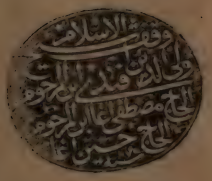 وقف
ولى الدين افندى ابن المرحوم
الحاج مصطفى اغا ابن المرحوم
الحاج حسين اغا